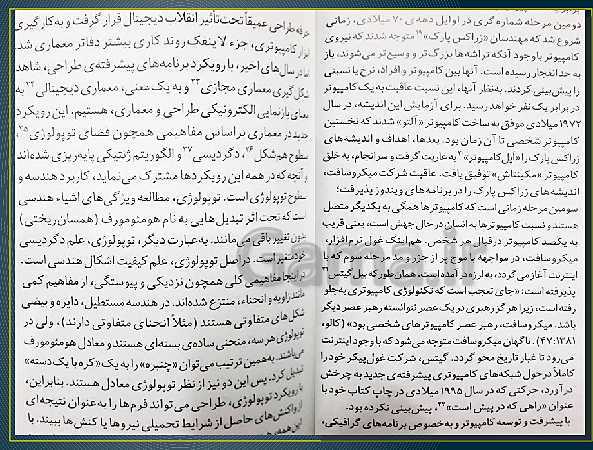 دومین مرحله شماره گری در اوایل دهه‌ی ۷۰ میلادی، زمانی
شروع شد که مهندسان «زراکس پارک»۱۹ متوجه شدند که نیروی
کامپیوتر با وجود آنکه تراشه‌ها بزرگ‌تر و وسیع‌تر می‌شوند، باز
به حد انفجار رسیده است. آنها بین کامپیوتر و افراد، نرخ یا نسبتی
را پیش‌بینی کردند. به‌نظر آنها، این نسبت عاقبت به یک کامپیوتر
در برابر یک نفر خواهد رسید. برای آزمایش این اندیشه، در سال
۱۹۷۲ میلادی موفق به ساخت کامپیوتر «آلتو» شدند که نخستین
کامپیوتر شخصی تا آن زمان بود. بعدها، اهداف و اندیشه‌های
زراکس پارک را «اپل کامپیوتر»۲۰ به عاریت گرفت و سرانجام، به خلق
کامپیوتر «مکینتاش» توفیق یافت. عاقبت شرکت میکروسافت،
اندیشه‌های زراکس پارک را در برنامه‌های ویندوز پذیرفت؛
سومین مرحله زمانی است که کامپیوترها همگی به یکدیگر متصل
هستند و نسبت کامپیوترها به انسان در حال جهش است، یعنی قریب
به یکصد کامپیوتر در قبال هر شخص. هم‌اینک غول نرم‌افزار،
میکروسافت، در مواجهه با موج پر از جزر و مد مرحله سوم که با
اینترنت آغاز می‌گردد، به لرزه درآمده است، همان‌طور که بیل گیتس۲۱
پذیرفته است: «جای تعجب است که تکنولوژی کامپیوتری به جلو
رفته است، زیرا هر گز رهبری در یک عصر نتوانسته رهبر عصر دیگر
باشد. میکروسافت، رهبر عصر کامپیوترهای شخصی بود» (کالو،
۱۳۸۱: ۴۷). ناگهان میکروسافت متوجه می‌شود که با وجود اینترنت
می‌رود تا غبار تاریخ محو گردد. گیتس، شرکت غول‌پیکر خود را
کاملاً در حول شبکه‌های کامپیوتری پیشرفته‌ی جدید به چرخش
درآورد، حرکتی که در سال ۱۹۹۵ میلادی در چاپ کتاب خود با
عنوان «راهی که در پیش است»۲۲، پیش‌بینی نکرده بود.
با پیشرفت و توسعه کامپیوتر و به‌خصوص برنامه‌های گرافیکی،
حرفه طراحی عمیقاً تحت تأثیر انقلاب دیجیتال قرار گرفت و به‌کارگیری
ابزار کامپیوتری، جزء لاینفک روند کاری بیشتر دفاتر معماری شد.
اما در سال‌های اخیر، با رویکرد برنامه‌های پیشرفته‌ی طراحی، شاهد
شکل‌گیری معماری مجازی۲۳ و به یک معنی، معماری دیجیتالی۲۴ به
معنای بازنمایی الکترونیکی طراحی و معماری، هستیم. این رویکرد
جدید در معماری براساس مفاهیمی همچون فضای توپولوژی۲۵،
سطوح هم‌شکل۲۶، دگردیسی۲۷ و الگوریتم ژنتیکی پایه‌ریزی شده‌اند
و آنچه که در همه این رویکردها مشترک می‌نماید، کاربرد هندسه و
سطوح توپولوژی است. توپولوژی، مطالعه ویژگی‌های اشیاء هندسی
است که تحت اثر تبدیل‌هایی به نام هومئومورف (همسان ریختی)
بدون تغییر باقی می‌مانند. به عبارت دیگر، توپولوژی، علم دگردیسی
فرم است. در اصل توپولوژی، علم کیفیت اشکال هندسی است.
در اینجا مفاهیمی کلی همچون نزدیکی و پیوستگی، از مفاهیم کمی
مانند زاویه و انحناء، منتزع شده‌اند. در هندسه مستطیل، دایره و بیضی
شکل‌های متفاوتی هستند (مثلاً انحنای متفاوتی دارند)، ولی در
توپولوژی هر سه، منحنی ساده‌ی بسته‌ای هستند و معادل هومئومورف
می‌باشند. به همین ترتیب می‌توان «چنبره» را به یک «کره با یک دسته»
تبدیل کرد. پس این دو نیز از نظر توپولوژی معادل هستند. بنابراین،
با رویکرد توپولوژی، طراح می‌تواند فرم‌ها را به عنوان نتیجه‌ای
از واکنش‌های حاصل از شرایط تحمیلی نیروها یا کنش‌ها ببیند. با